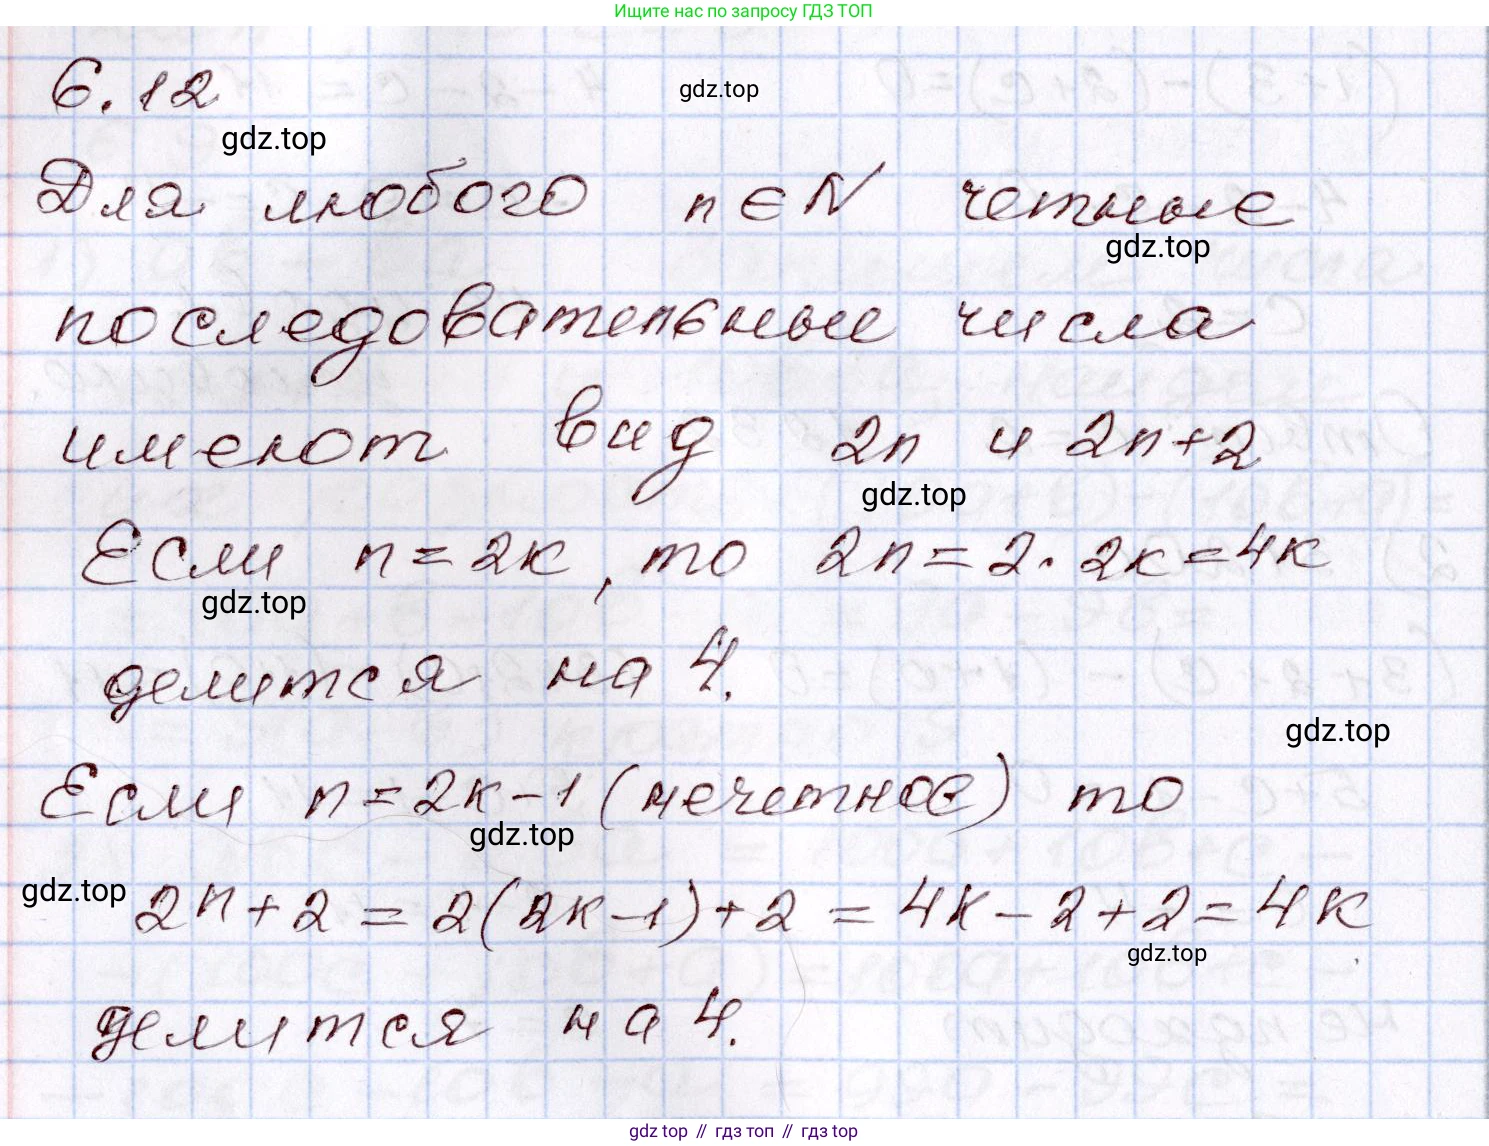 Ищите нас по запросу ГДЗ ТОП
6.12
gdz.top
gdz.top
Для любого n∈N четные
gdz.top
последовательные числа
имеют вид 2n и 2n+2
gdz.top
Если n=2к, то 2n=2·2к=4к
gdz.top
делится на 4.
gdz.top
Если n=2к-1 (нечетное) то
gdz.top
gdz.top
2n+2=2(2к-1)+2=4к-2+2=4к
gdz.top
делится на 4.
gdz top // гдз топ // гдз top